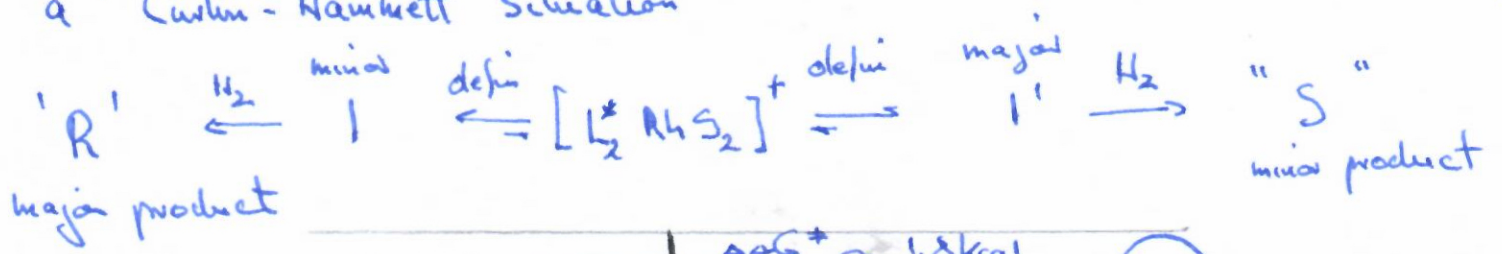 a Curtin-Hammett Situation
'R' ←H₂ minor I ⇌ olefin [L₂* Rh S₂]⁺ olefin ⇌ major I' H₂→ "S"
major product minor product
ΔΔG*